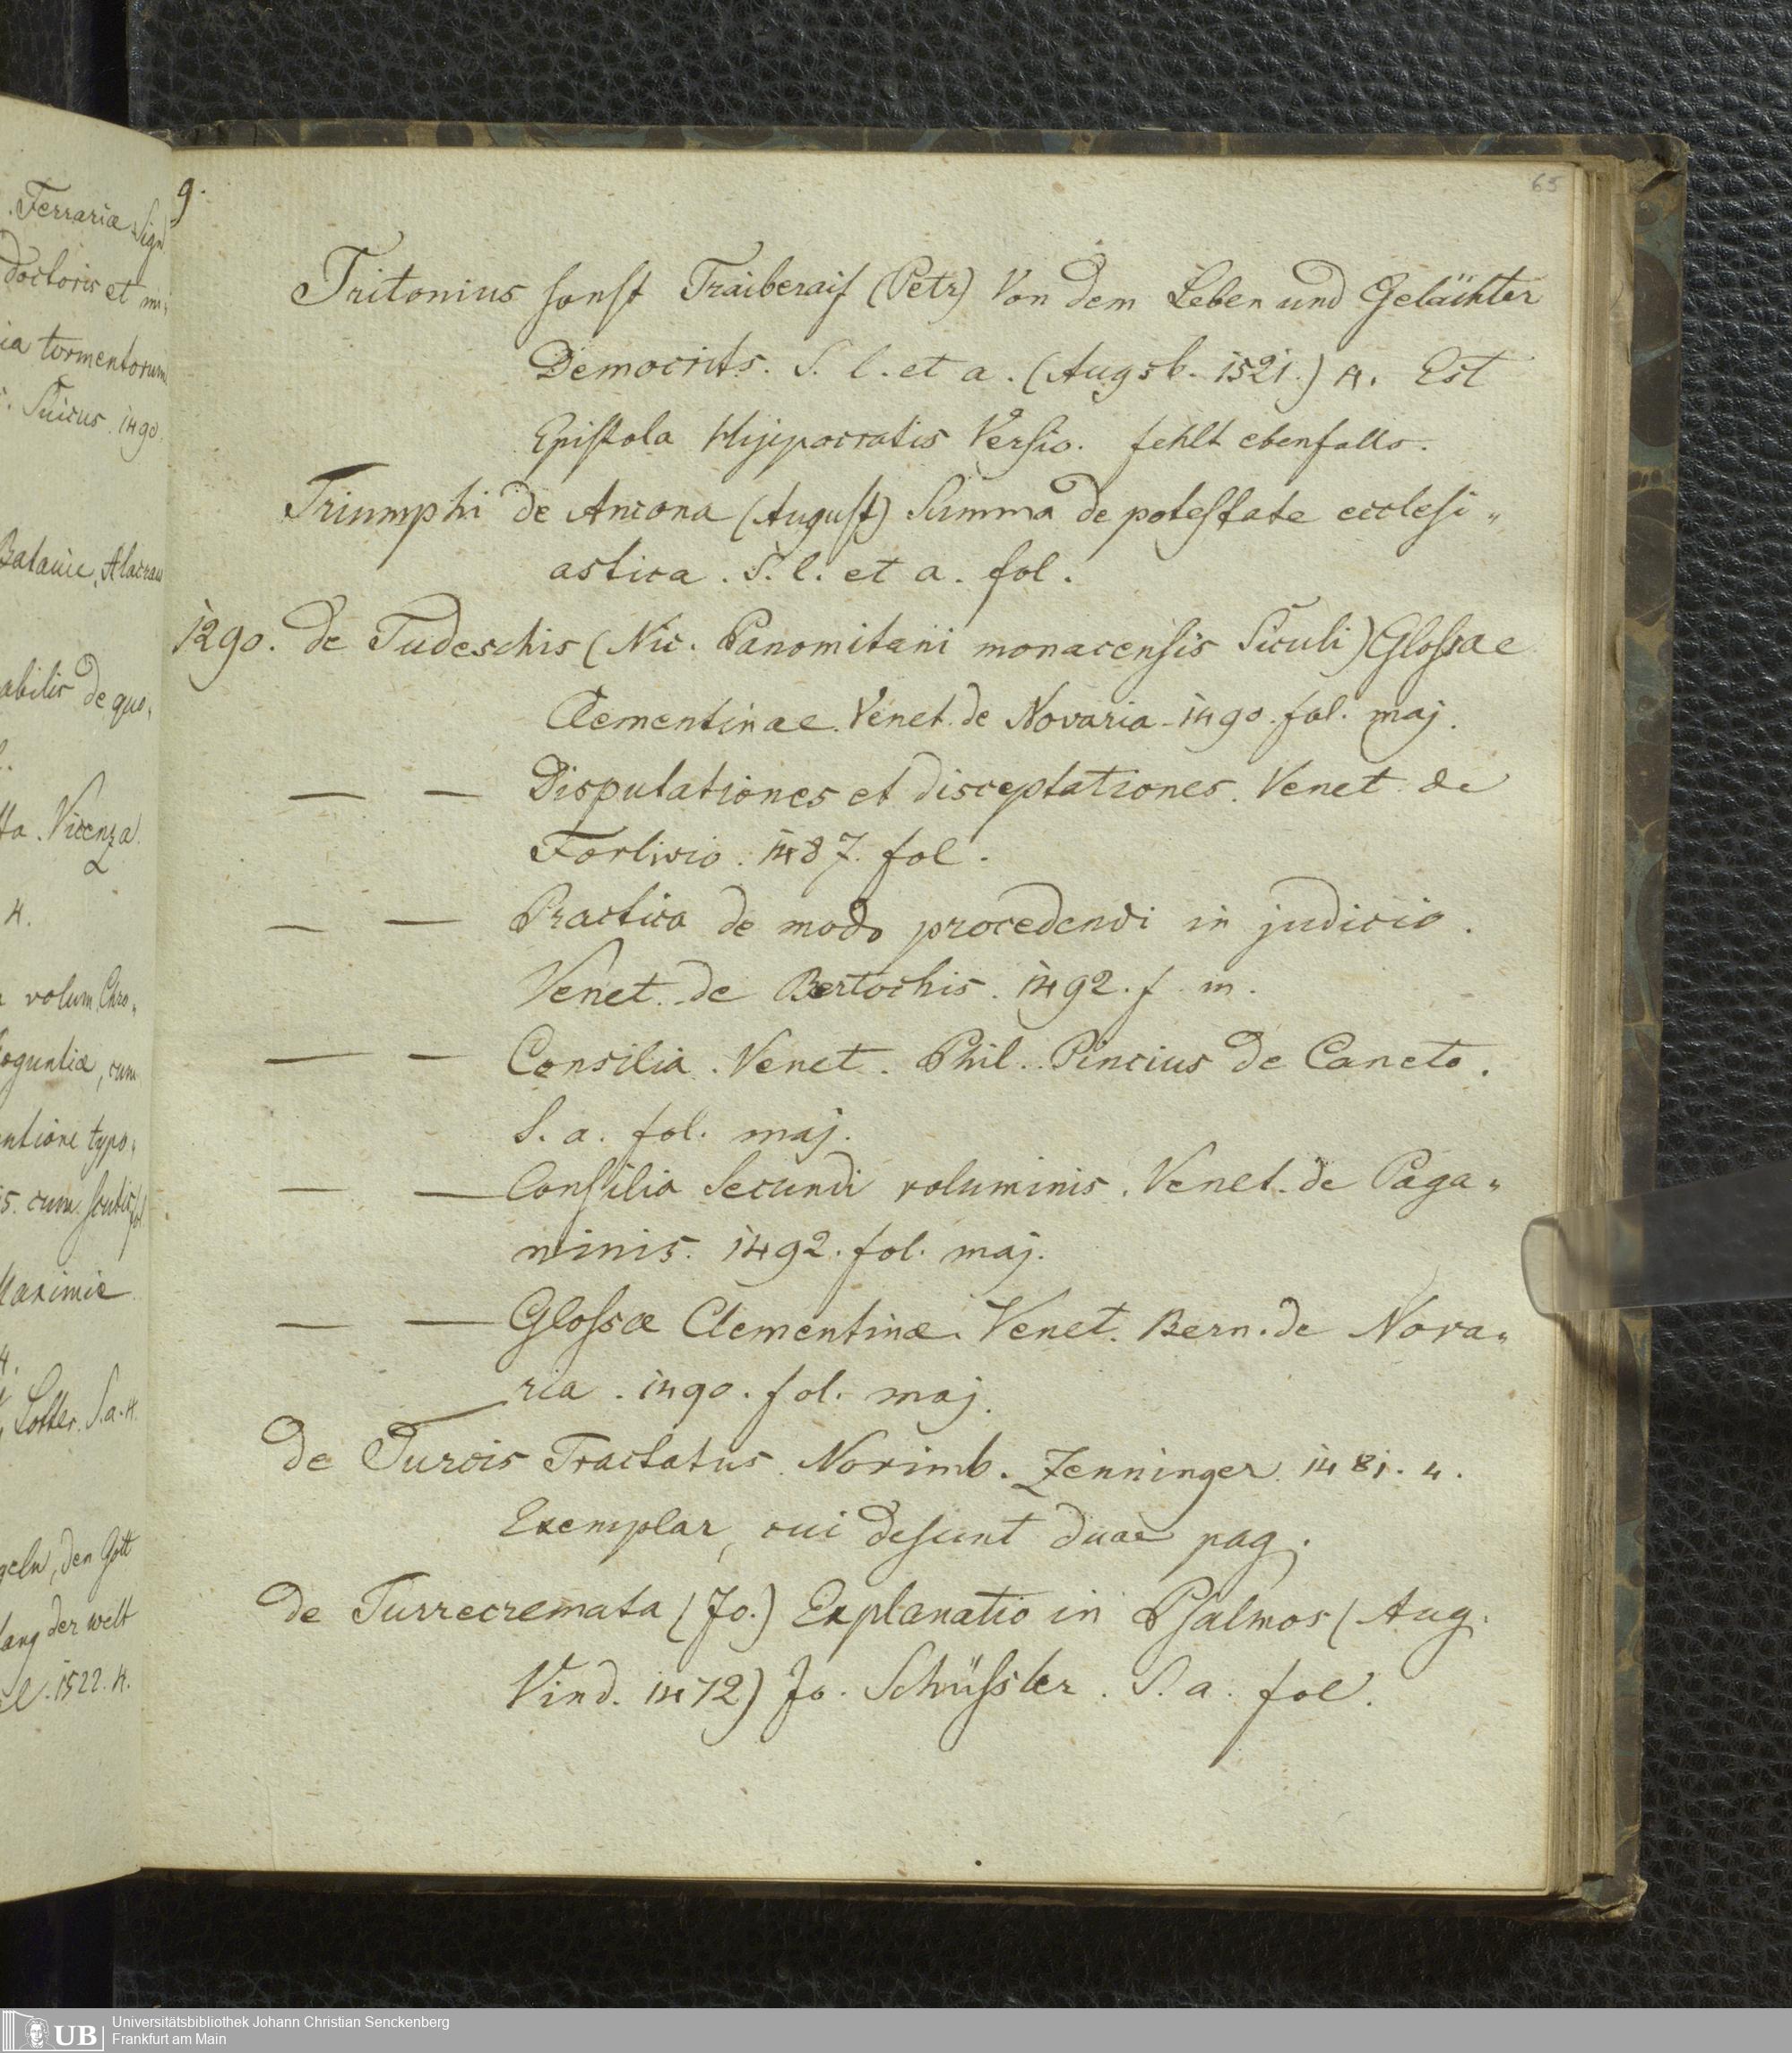 . Ferrariæ. Sign
doctoris et mi„
ia tormentorum
1490.
Vicenza
4.
volum. Chro„
oguntiæ, cum
ntione typo„
Lotter. S. a. 4.
geln, den Gott
fang der welt
1522. 4.
9.
65
Tritonius sonst Traiberaiſ (Petr) Von dem Leben und Gelächter
Democrits. S. l. et a. (Augsb. 1521.) 4. Est
Epiſtola Hippocratis Verſio. fehlt ebenfalls.
Triumphi de Ancona (Auguſt) Summa de poteſtate eccleſi„
astica. S. l. et a. fol.
1290. de Tudeschis (Nic. Panomitani monacenſis Siculi) Gloſsae
Clementinae. Venet. de Novaria. 1490. fol. maj.
— — Disputationes et disceptationes. Venet. de
Forlivio. 1487. fol.
— — Practica de modo procedendi in judicio.
Venet. de Bertochis. 1492. f. m.
— — Consilia. Venet. Phil. Pincius de Caneto.
S. a. fol. maj.
— — Conſilia Secundi voluminis. Venet. de Paga„
ninis. 1492. fol. maj.
— — Gloſsæ Clementinæ. Venet. Bern. de Nova„
ria. 1490. fol. maj.
de Turcis Tractatus. Norimb. Zenninger. 1481. 4.
Exemplar, cui deſunt duae pag.
de Turrecremata (Jo.) Explanatio in Pſalmos (Aug.
Vind. 1472) Jo. Schüſsler. S. a. fol.
UB
Universitätsbibliothek Johann Christian Senckenberg
Frankfurt am Main